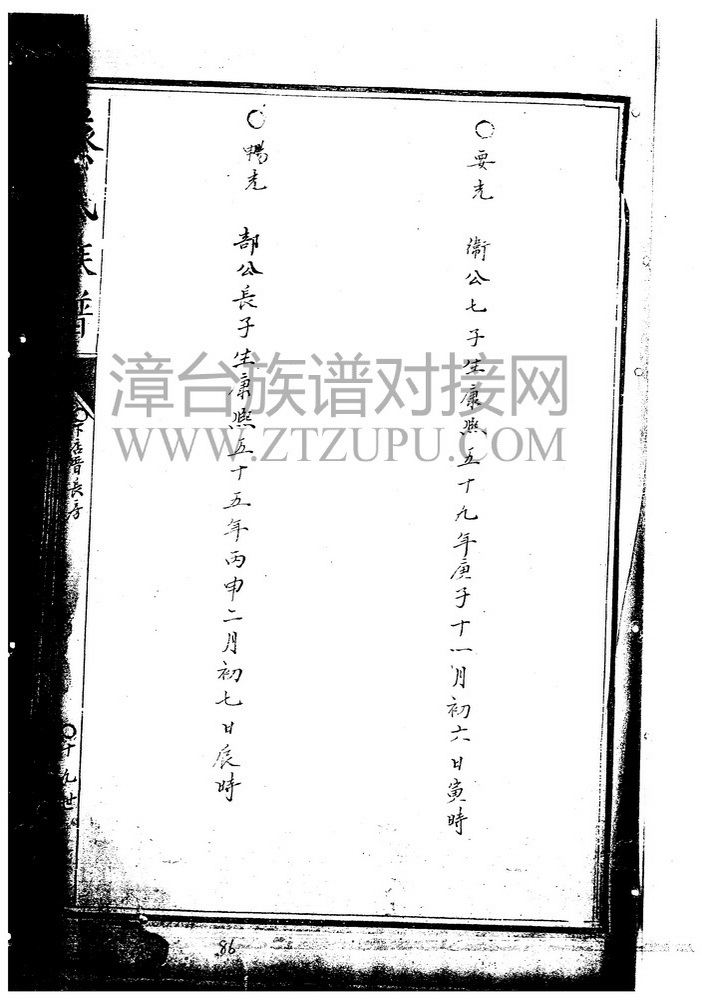 ○要光 衞公七子生康熙五十九年庚子十一月初六日寅時
○暢光 部公長子生康熙五十五年丙申二月初七日辰時
氏族譜
長房
○十九世
86
漳台族谱对接网
WWW.ZTZUPU.COM